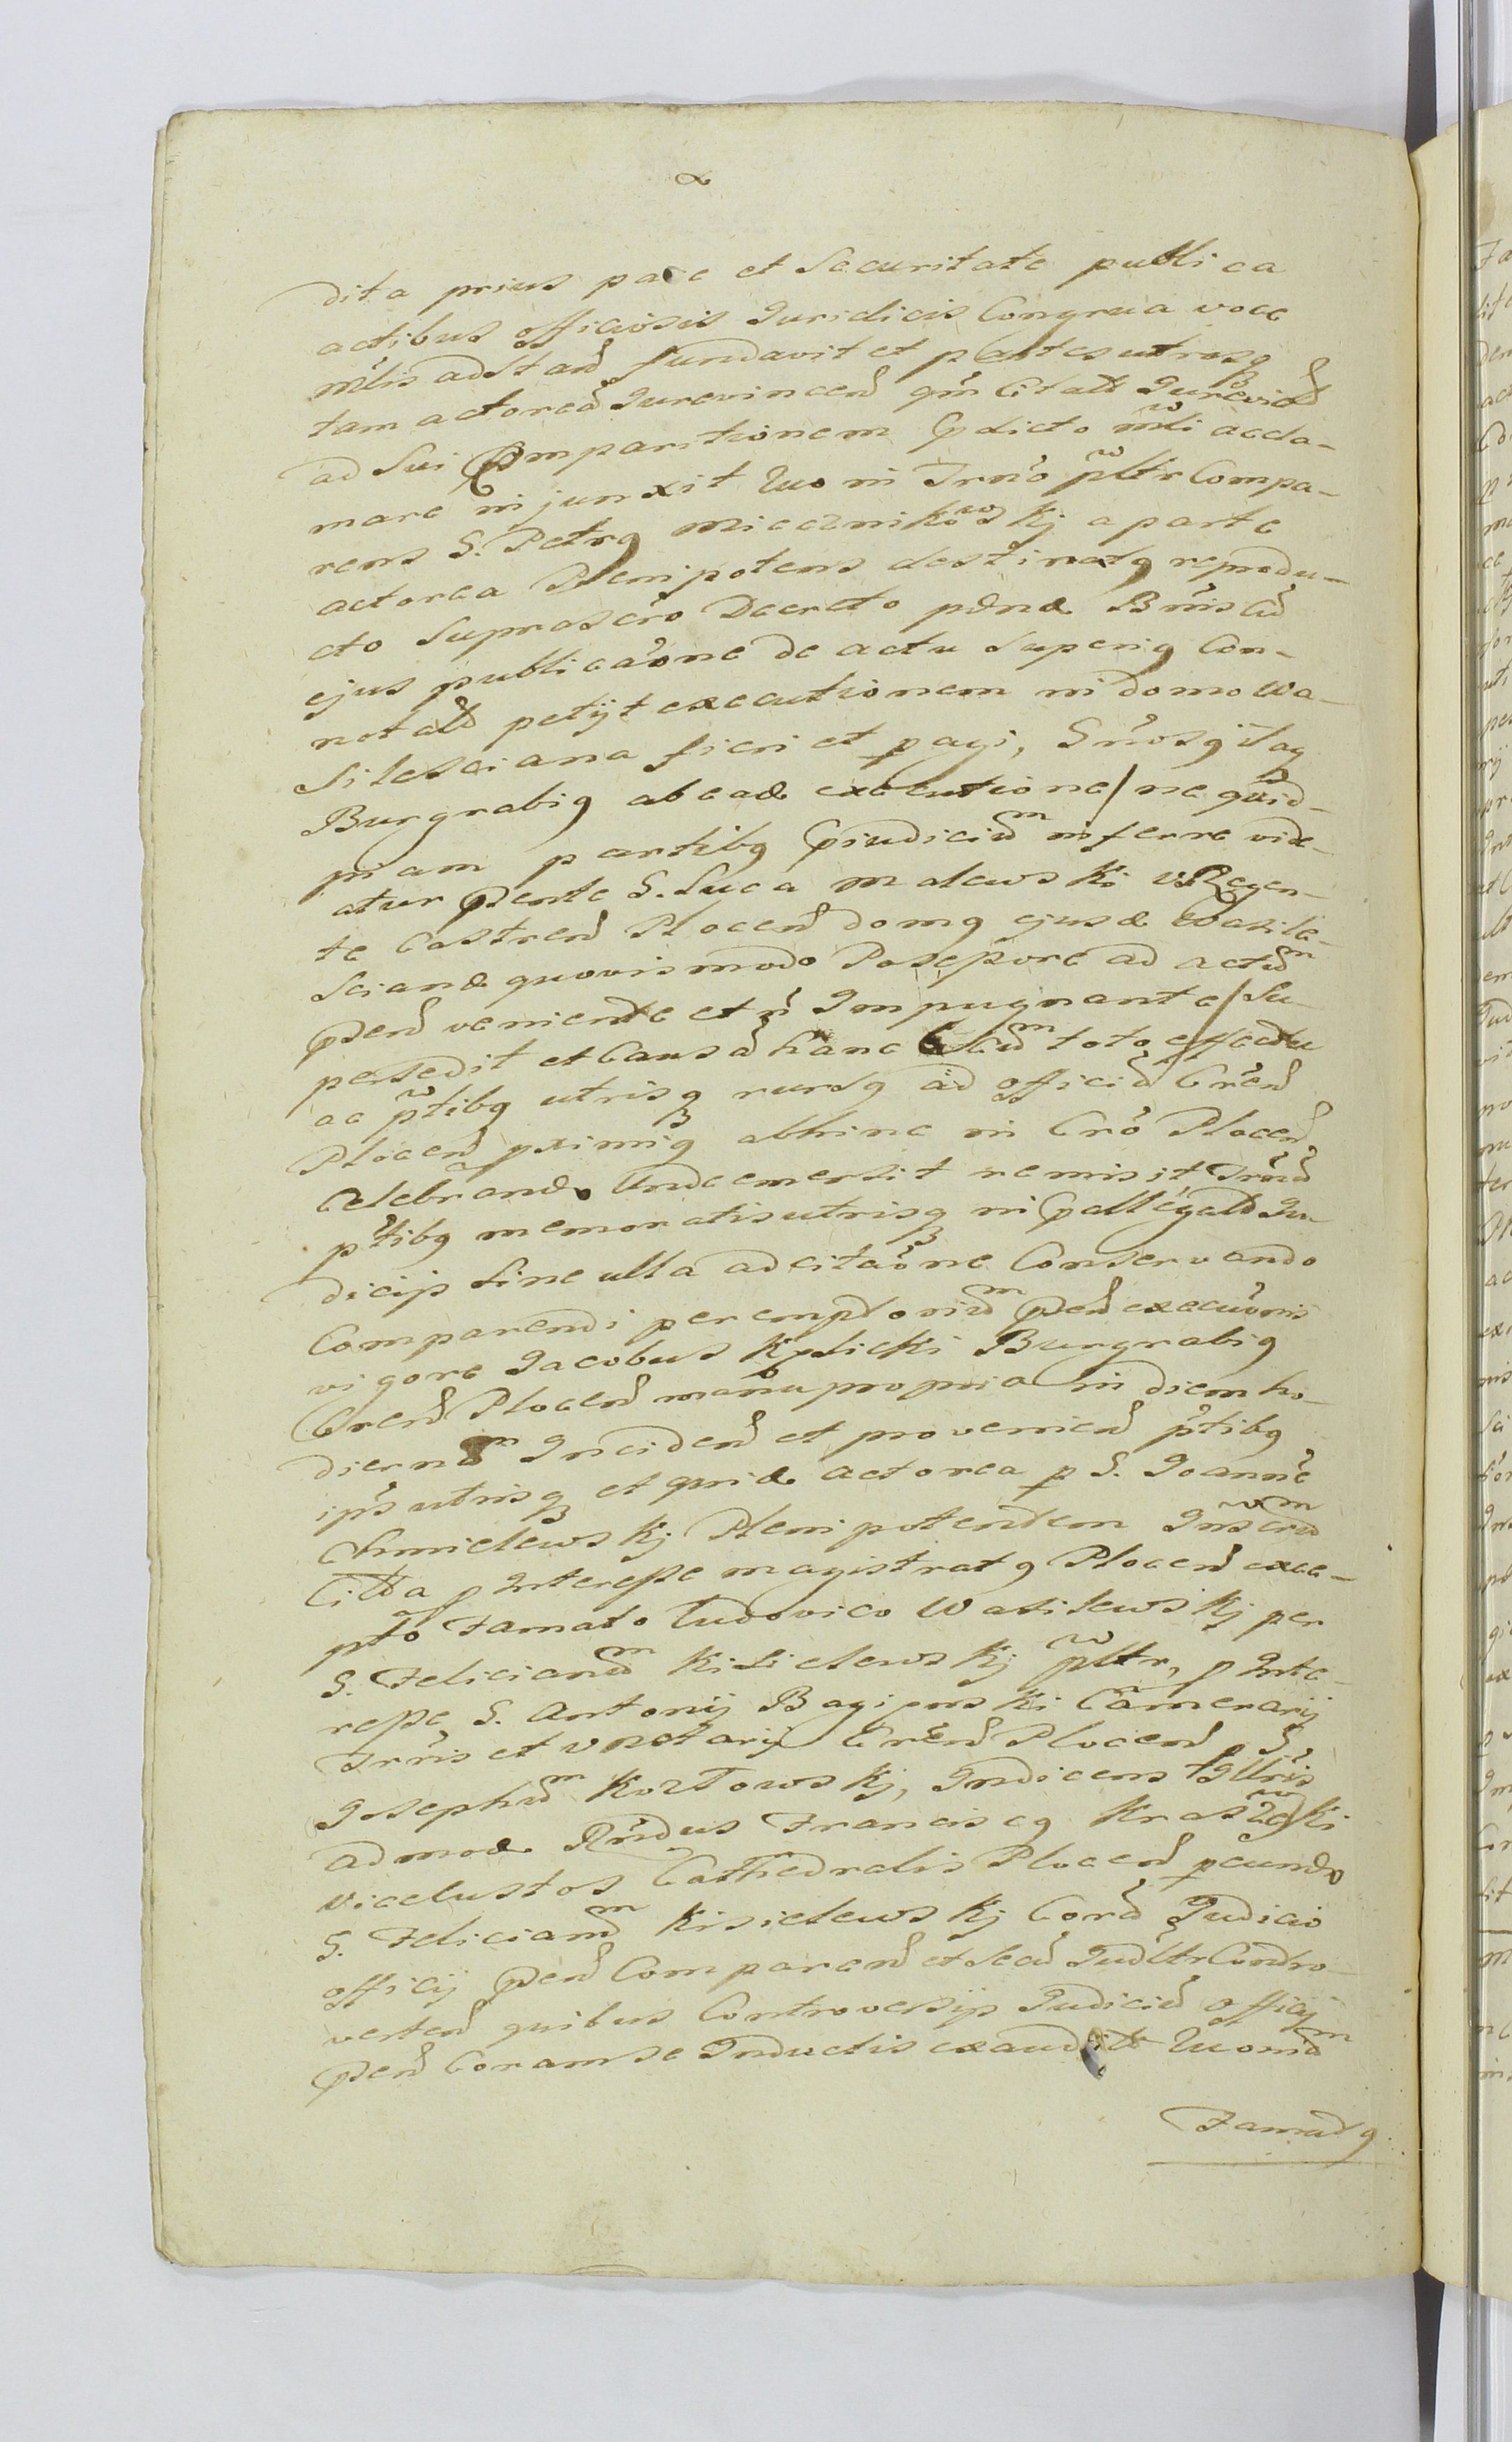 dita prius pace et Securitate publica
actibus officiosis Juridicis Congrua voce
mlis adstan̄ fundavit et partes utrasq̃
tam actorea Jurevincen̄ qm̄ Citatt Jurevict̄
ad Sui Comparitionem Edicto mli accla-
mare injunxit Quo in Trn̄o pltr Compa-
rens G. Petrq Miecznikowskj a parte
actorea Plenipotens destinatq reprodu-
cto Suprascr̄o Decreto pdnæ Brn̄is Cū
ejus publicaōne de actu Superiq Con-
notatt petijt executionem in domo Wa-
silesciana fieri et pagi, Gn̄osq itaq
Burgrabiq ab eadē executione / ne quid-
piam partibq Pjudiciūm inferre vide-
atur Pn̄te G. Luca Malewski v. Regen-
te Castren̄ Plocen̄ domq ejusdē Wasile-
scianæ quovismodo Possessore ad actūm
Pn̄tem veniente et n̄ Impugnante / Su-
persedit et Causā hanc Cūm toto effectu
ac ptibq utrisq̃ rursq ad officiū Cr̄en̄
Plocen̄ pximiq abhinc in Cr̄o Plocen̄
Celebrand. Unde emersit remisit Trn̄ū
ptibq memoratis utrisq̃ in Pallegatt Ju-
dicijs Sine ulla adcitaōne Conservando
Comparendi peremptoriūm Pn̄ executōnis
vigore Jacobus Kplicki Burgrabiq
Cren̄ Plocen̄ manu propria in diem ho-
diernūm Inciden̄ et provenien̄ ptibq
ip̄s utrisq̃ et quidē actorea p G. Joannē
Chmielewskj Plenipotentem Inscrūm
Citta p Interesse magistratq Plocen̄ exce-
pto Famato Ludovico Wasilewskj per
G. Felicianūm Kisielewskj pltr, p Inte-
resse G. Antonij Bagienski Camerarij
Trn̄is et v notarij Cr̄en̄ Plocen̄ p G.
Josephūm Kozłowskj, Indicens Illris
admodē Rn̄dus Franciscq Kraszewski
Vicecustos Cathedralis Plocen̄ p eundē
G. Felicianūm Kisielewskj Corā Judicio
officij Pn̄ Comparen̄ et Secū Judltr Contro-
verten̄ quibus Controversijs Judiciū officij
Pn̄ Coram se Inductis exauditis Quonīam
Famatq